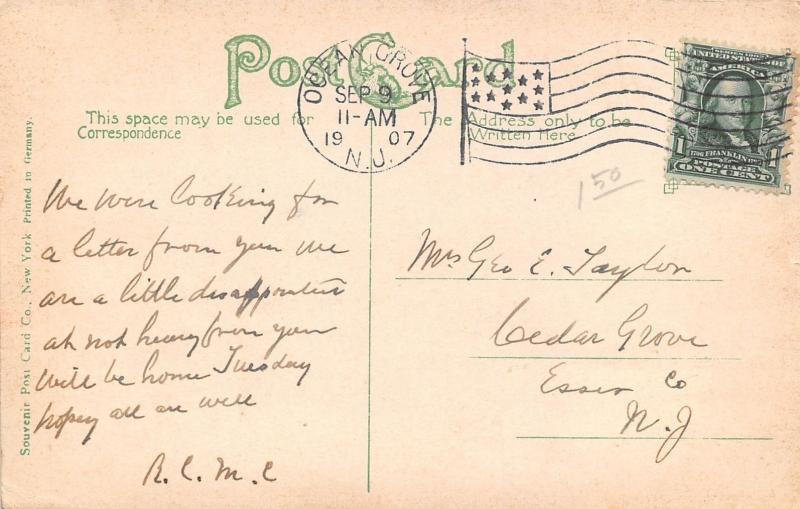 Post Card
OCEAN GROVE
SEP 9
11-AM
19 07
N.J.
UNITED STATES OF AMERICA
1 FRANKLIN 1
POSTAGE
ONE CENT
This space may be used for
Correspondence
The Address only to be
Written Here
1 50
We were looking for
a letter from you we
are a little disappointed
at not hearing from you
will be home Tuesday
hoping all are well
R. C. M. C
Mrs Geo E. Taylor
Cedar Grove
Essex Co
N. J
Souvenir Post Card Co., New York Printed in Germany.